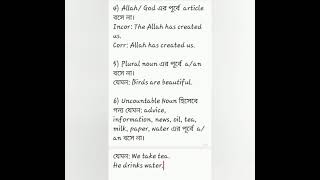 ৪) Allah/ God এর পূর্বে article
বসে না।
Incor: The Allah has created
us.
Corr: Allah has created us.
৫) Plural noun এর পূর্বে a/an
বসে না।
যেমন: Birds are beautiful.
৬) Uncountable Noun হিসেবে
গন্য যেমন: advice,
information, news, oil, tea,
milk, paper, water এর পূর্বে a/
an বসে না।
যেমন: We take tea.
He drinks water.